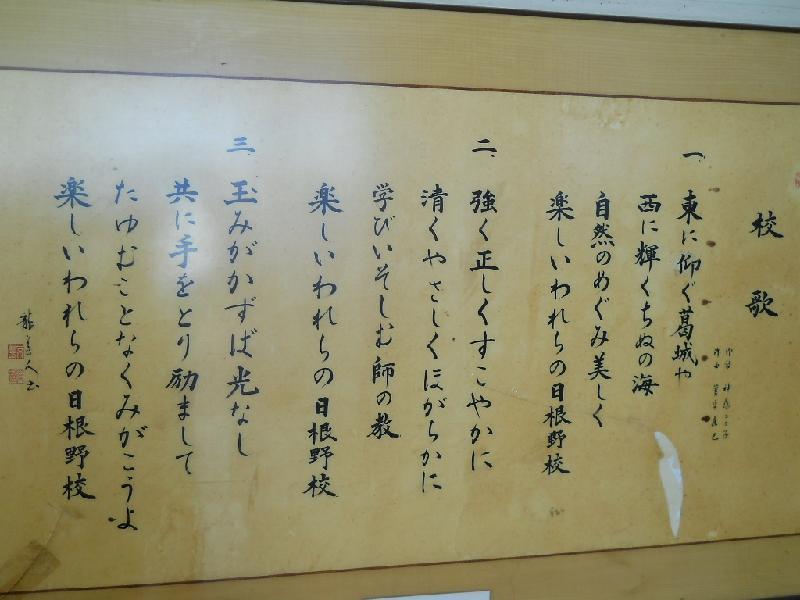 校歌
一 東に仰ぐ葛城や
西に輝くちぬの海
自然のめぐみ美しく
楽しいわれらの日根野校
二 強く正しくすこやかに
清くやさしくほがらかに
学びいそしむ師の教
楽しいわれらの日根野校
三 玉みがかずば光なし
共に手をとり励まして
たゆむことなくみがこうよ
楽しいわれらの日根野校